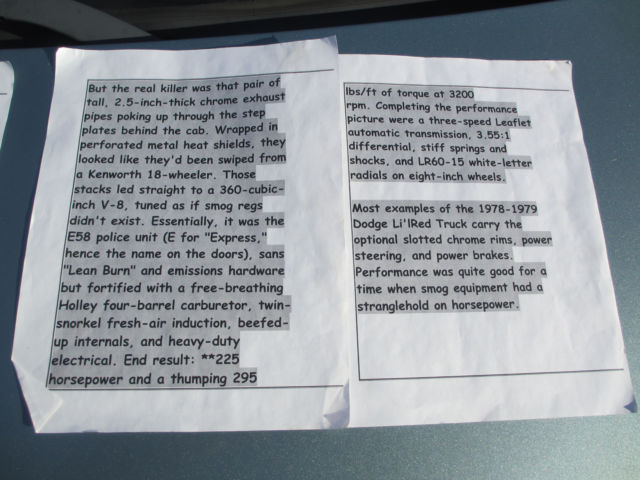 But the real killer was that pair of
tall, 2.5-inch-thick chrome exhaust
pipes poking up through the step
plates behind the cab. Wrapped in
perforated metal heat shields, they
looked like they'd been swiped from
a Kenworth 18-wheeler. Those
stacks led straight to a 360-cubic-
inch V-8, tuned as if smog regs
didn't exist. Essentially, it was the
E58 police unit (E for "Express,"
hence the name on the doors), sans
"Lean Burn" and emissions hardware
but fortified with a free-breathing
Holley four-barrel carburetor, twin-
snorkel fresh-air induction, beefed-
up internals, and heavy-duty
electrical. End result: **225
horsepower and a thumping 295
lbs/ft of torque at 3200
rpm. Completing the performance
picture were a three-speed Leaflet
automatic transmission, 3.55:1
differential, stiff springs and
shocks, and LR60-15 white-letter
radials on eight-inch wheels.
Most examples of the 1978-1979
Dodge Li'lRed Truck carry the
optional slotted chrome rims, power
steering, and power brakes.
Performance was quite good for a
time when smog equipment had a
stranglehold on horsepower.